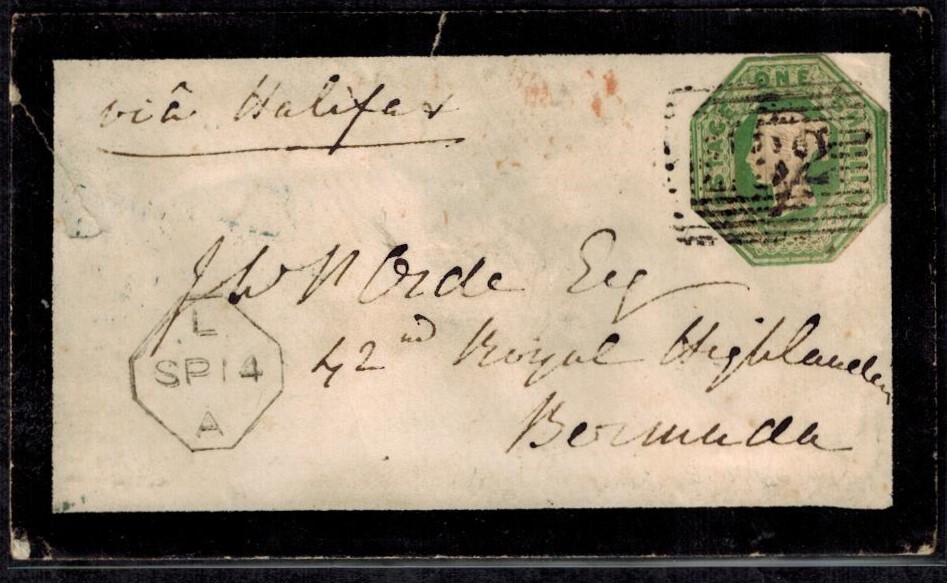 viâ Halifax
ONE
J W P Orde Esq
42nd Royal Highlanders
Bermuda
L
SP 14
A